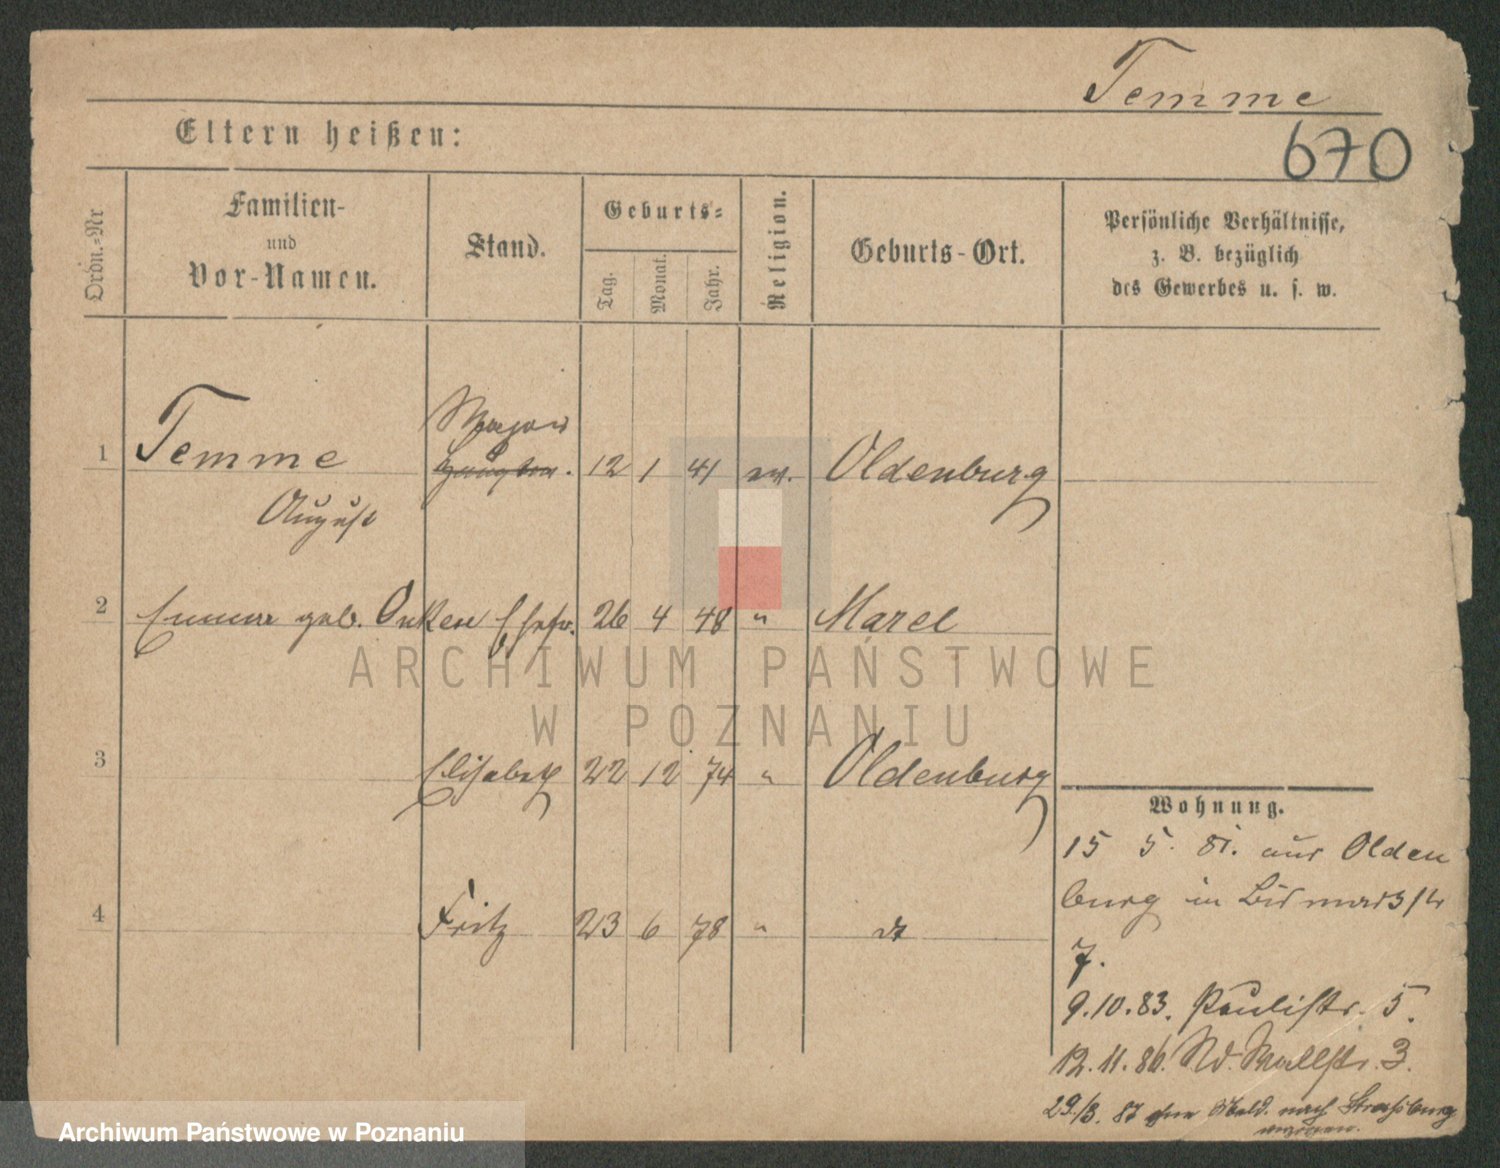 Temme
670
Eltern heißen:
Ordn.=Nr
Familien-
und
Vor-Namen.
Stand.
Geburts=
Tag.
Monat.
Jahr.
Religion.
Geburts-Ort.
Persönliche Verhältnisse,
z. B. bezüglich
des Gewerbes u. s. w.
Major
1 Temme Hauptm. 12 1 41 ev. Oldenburg
August
2 Emma geb. Onken Ehefr. 26 4 48 " Varel
ARCHIWUM PAŃSTWOWE
W POZNANIU
3 Elisabeth 22 12 74 " Oldenburg
Wohnung.
15 5. 81. aus Olden
burg in Bismarckstr
4 Fritz 23 6 78 " dt
7.
9.10.83. Paulistr. 5.
12.11.86. Nd. Wallstr. 3.
29./3. 87 ohne Meld. nach Strassburg
verzogen.
Archiwum Państwowe w Poznaniu